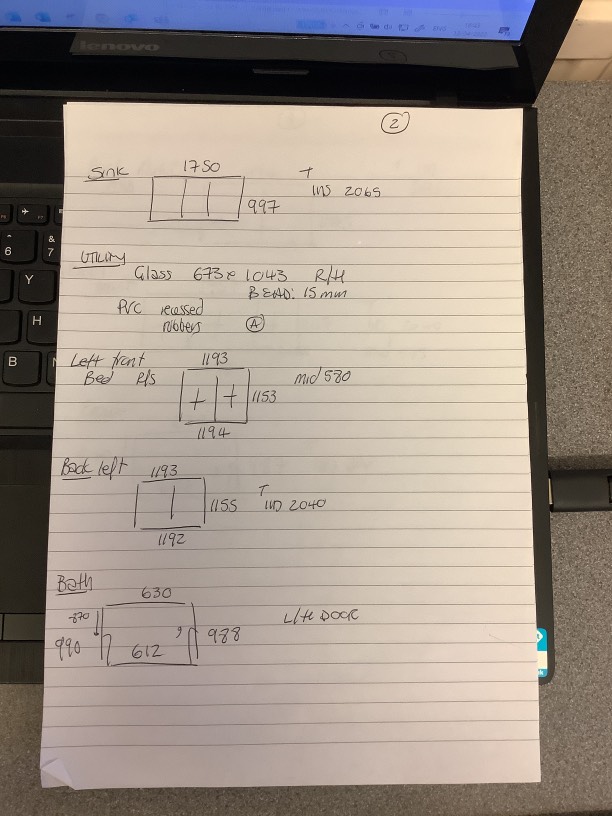 lenovo
2
Sink 1750 T
INS 2065
997
UTILITY
Glass 673 x 1043 R/H
BEAD: 15mm
PVC recessed
rubbers A
Left front 1193
Bed P/S mid 580
1153
1194
Back left 1193
1155 T
IND 2040
1192
Bath
630
870 L/H DOOR
990 612 988